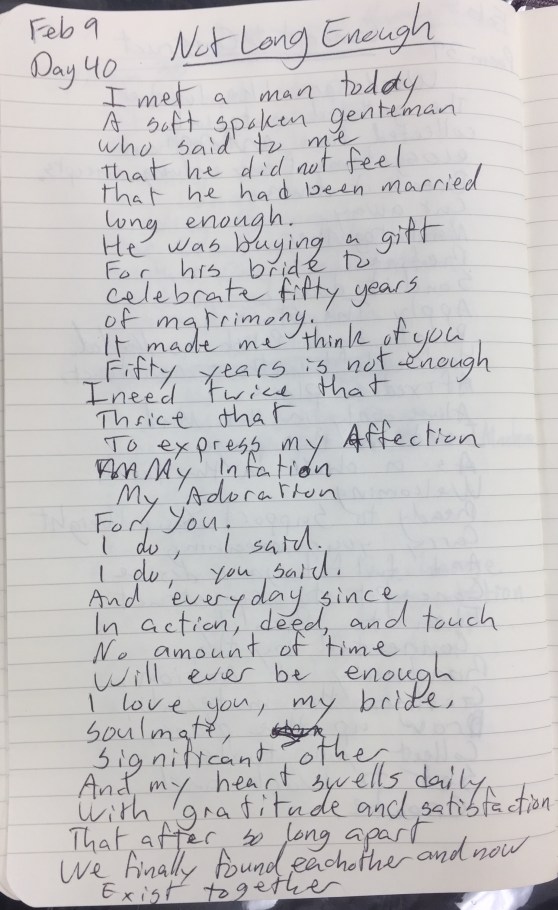 Feb 9
Not Long Enough
Day 40
I met a man today
A soft spoken genteman
who said to me
that he did not feel
that he had been married
long enough.
He was buying a gift
For his bride to
celebrate fifty years
of matrimony.
It made me think of you
Fifty years is not enough
I need twice that
Thrice that
To express my Affection
My Infation
My Adoration
For you.
I do, I said.
I do, you said.
And everyday since
In action, deed, and touch
No amount of time
Will ever be enough
I love you, my bride,
Soulmate,
Significant other
And my heart swells daily
With gratitude and satisfaction
That after so long apart
We finally found eachother and now
Exist together